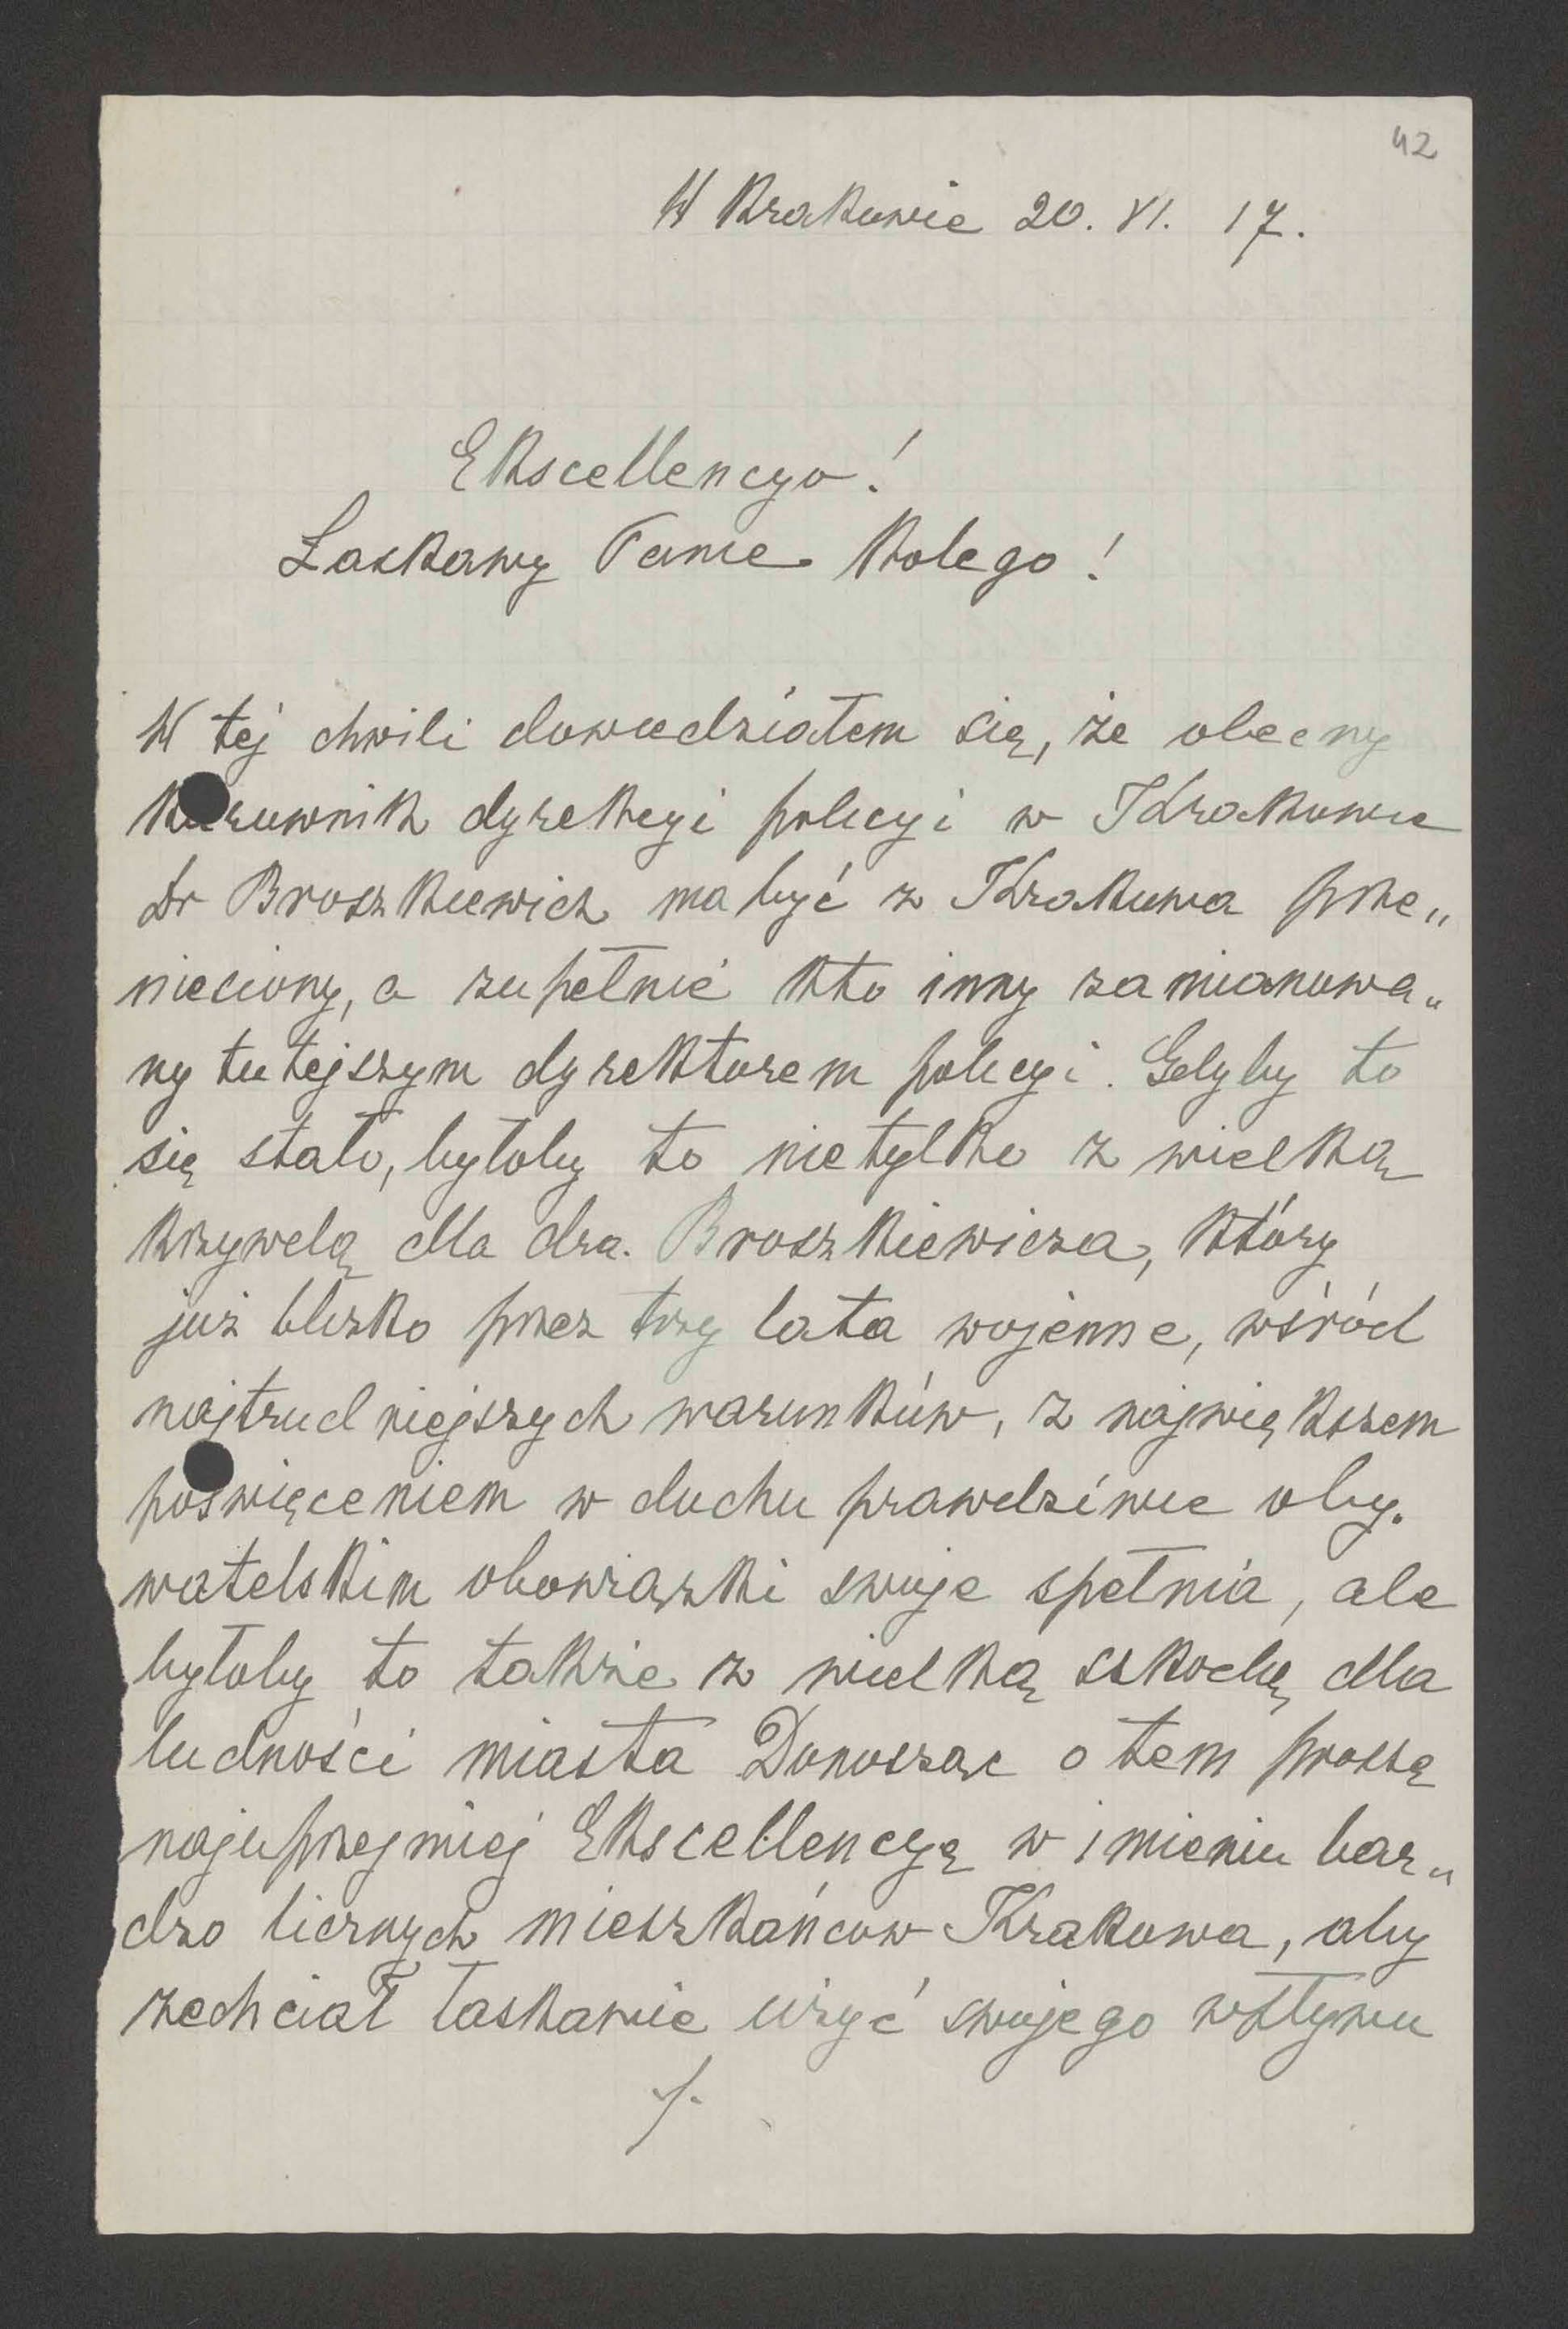 42
W Krakowie 20. VI. 17.
Ekscellencyo!
Łaskawy Panie Kolego!
W tej chwili dowiedziałem się, że obecny
kierownik dyrekcyi policyi w Krakowie
Dr Broszkiewicz ma być z Krakowa prze„
niesiony, a zupełnie kto inny zamianowa„
ny tutejszym dyrektorem policyi. Gdyby to
się stało, byłoby to nietylko z wielką
krzywdą dla dra. Broszkiewicza, który
już blizko przez trzy lata wojenne, wśród
najtrudniejszych warunków, z największem
poświęceniem w duchu prawdziwie oby„
watelskim obowiązki swoje spełnia, ale
byłoby to także z wielką szkodą dla
ludności miasta Donosząc o tem proszę
najuprzejmiej Ekscellencyę w imieniu bar„
dzo licznych mieszkańców Krakowa, aby
zechciał łaskawie użyć swojego wpływu
./.